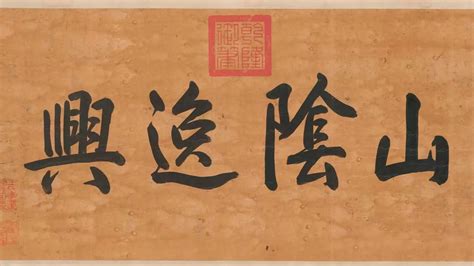 乾隆
御筆
山陰逸興